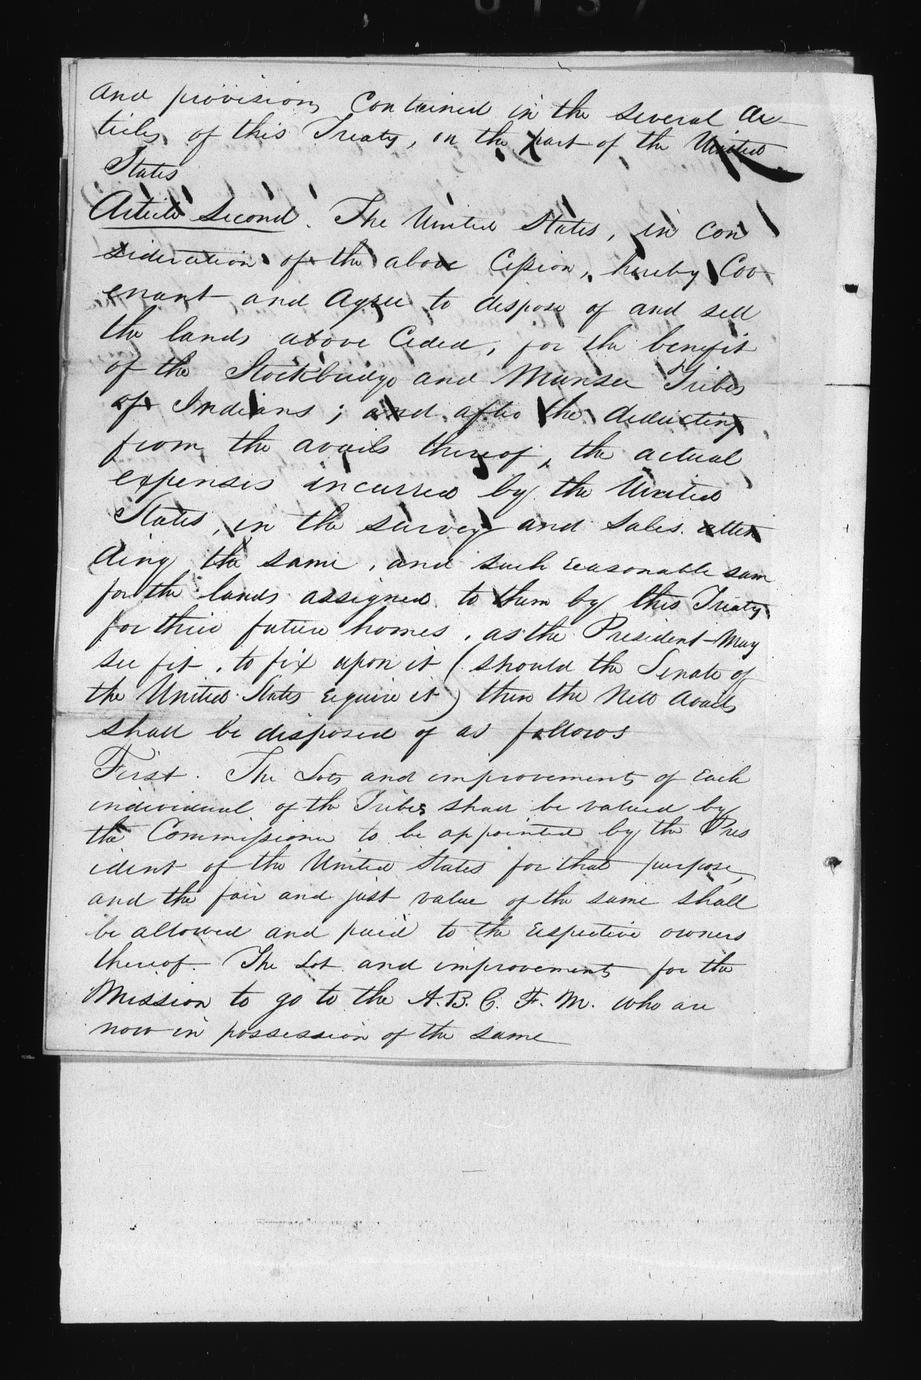 and provisions contained in the several ar-
ticles of this Treaty, on the part of the United
States
Article Second. The United States, in con
sideration of the above Cession, hereby Cov
enant and Agree to dispose of and sell
the lands above Ceded, for the benefit
of the Stockbridge and Munsee Tribes
of Indians; and after the deducting
from the avails thereof, the actual
expenses incurred by the United
States, in the survey and sales atten
ding the same, and such reasonable sum
for the lands assigned to them by this Treaty
for their future homes, as the President May
see fit, to fix upon it (should the Senate of
the United States require it) then the Nett Avails
shall be disposed of as follows
First. The Lots and improvements of each
individual of the Tribes shall be valued by
the Commissioner to be appointed by the Pres
ident of the United States for that purpose,
and the fair and just value of the same shall
be allowed and paid to the respective owners
thereof. The Lot and improvements for the
Mission to go to the A.B.C.F.M. who are
now in possession of the same